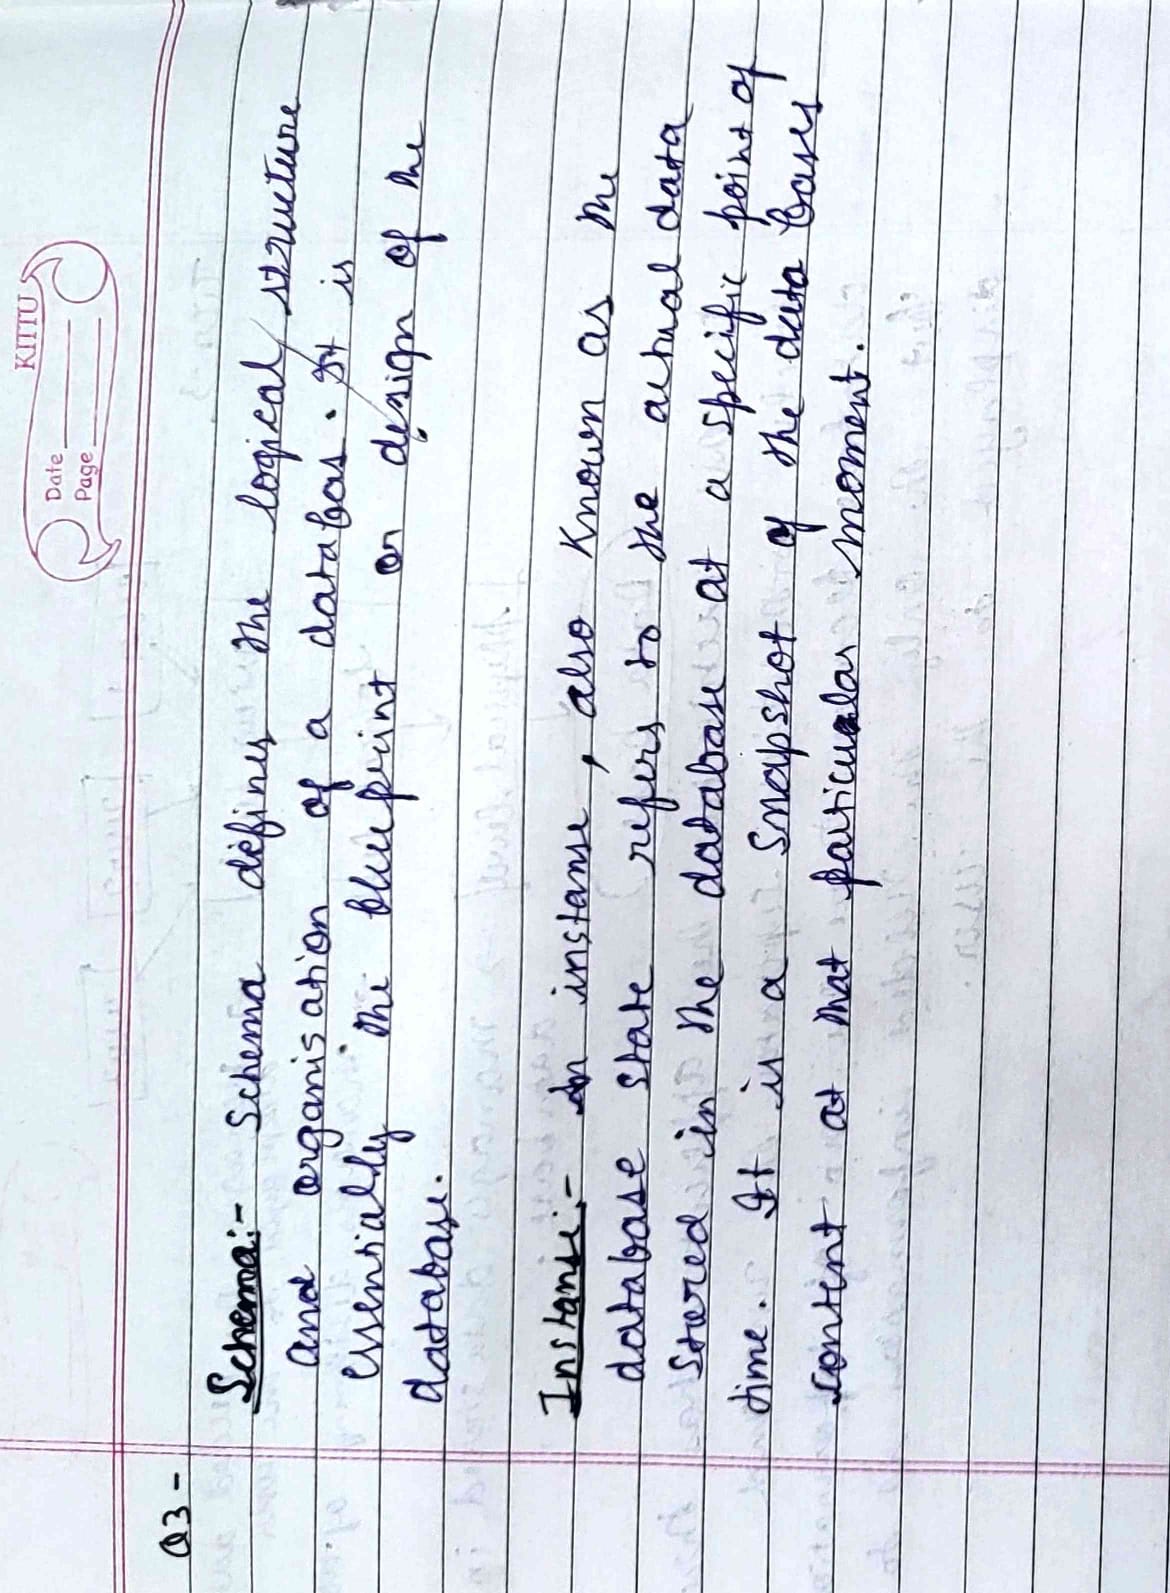 KITTU
Date
Page
Q3-
Schema:- Schema defines the logical structure
and organisation of a databas. It is
essentially the blueprint or design of the
database.
Instanse:- An instanse, also Known as the
database state refers to the actual data
stored in the database at a specific point of
time. It is a snapshot of the data bases
content at that particular moment.